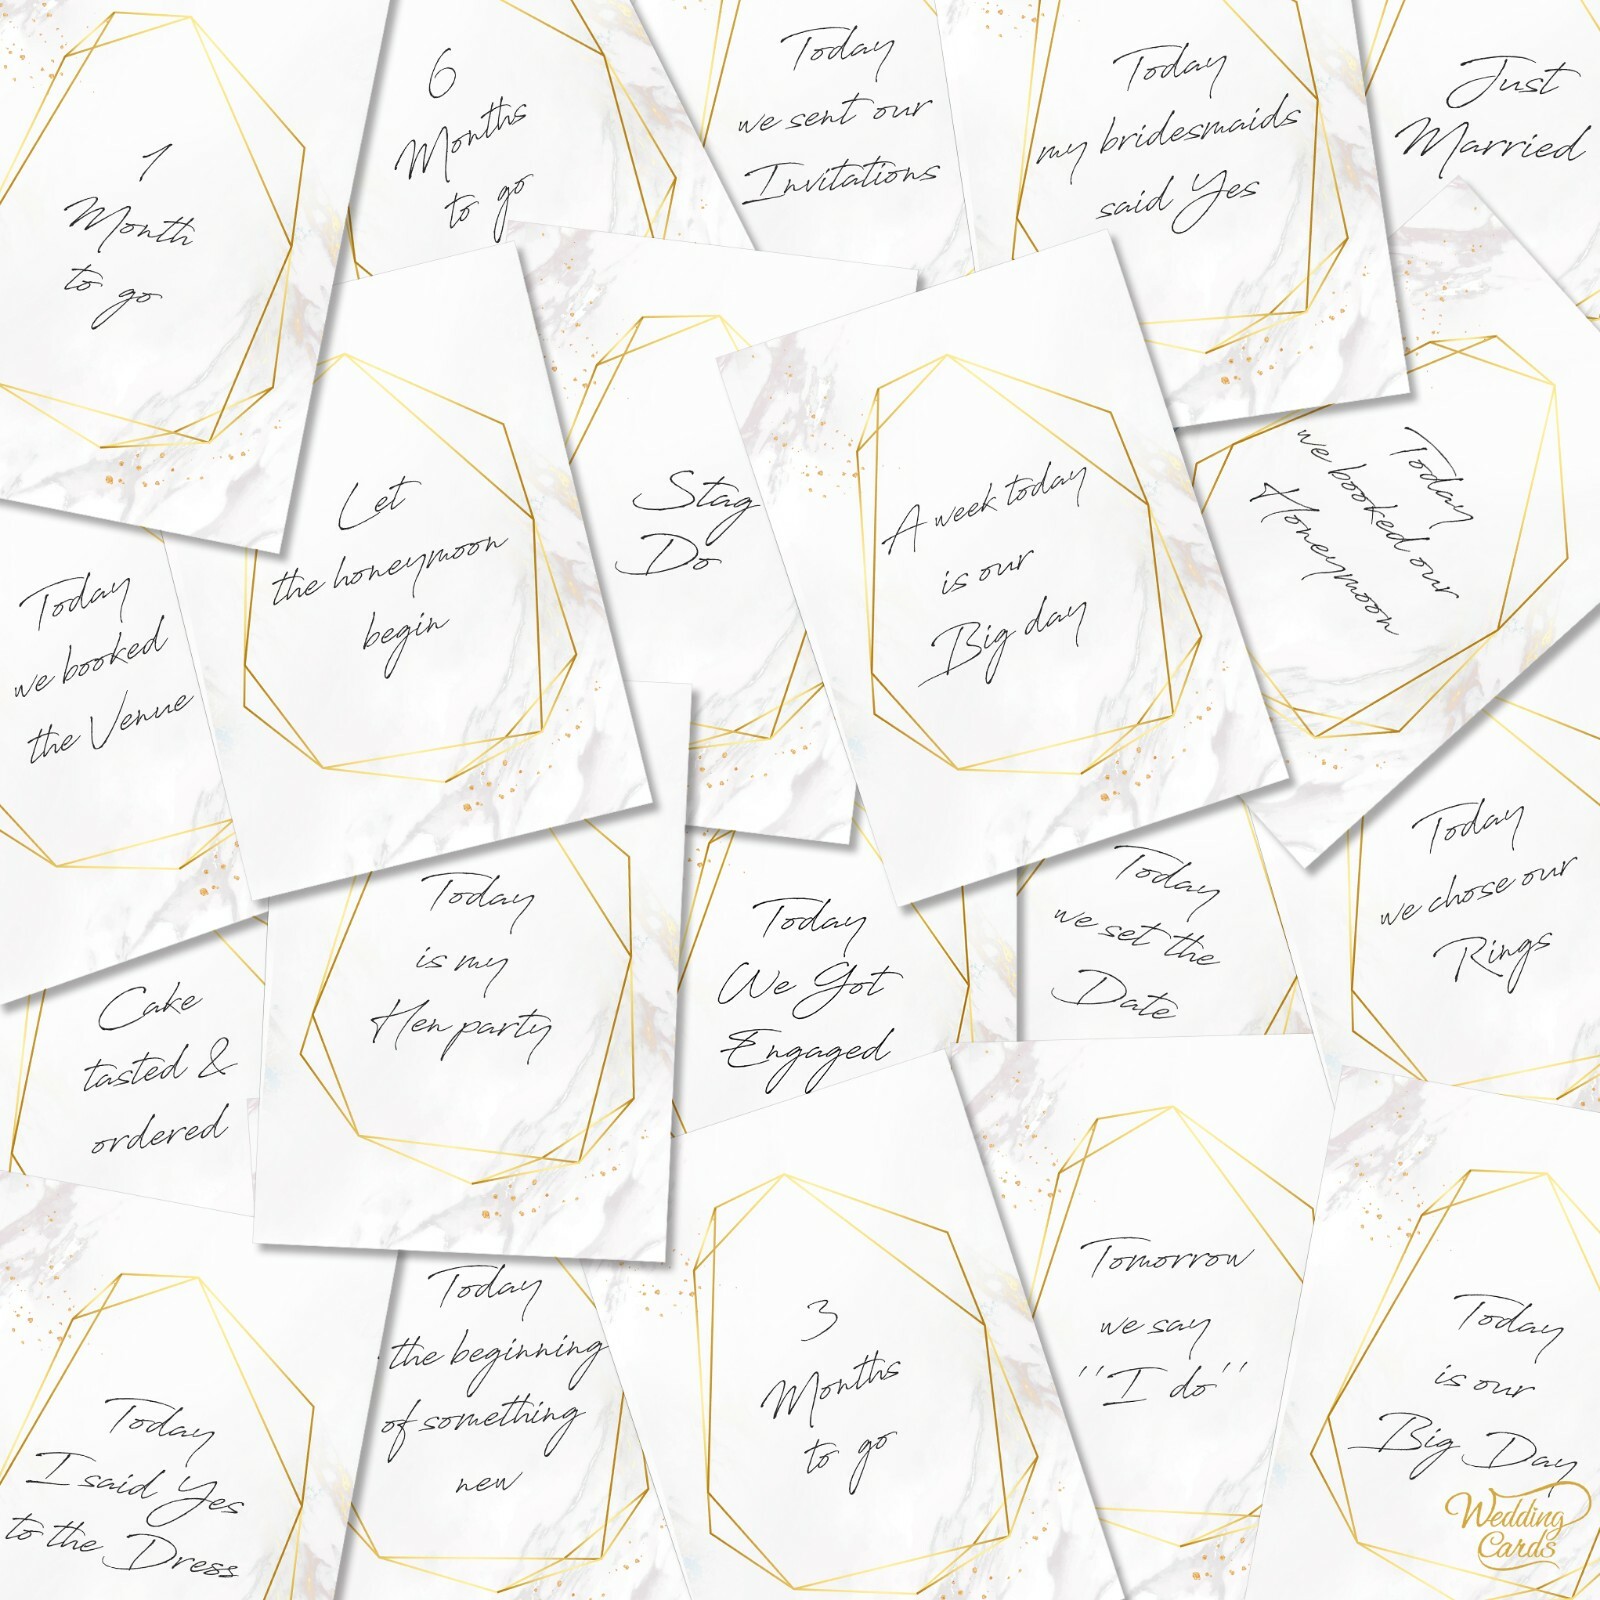 1
Month
to go
6
Months
to go
Today
we sent our
Invitations
Today
my bridesmaids
said Yes
Just
Married
Let
the honeymoon
begin
Stag
Do
A week today
is our
Big day
Today
we booked our
Honeymoon
Today
we booked
the Venue
Today
is my
Hen party
Today
We Got
Engaged
Today
we set the
Date
Today
we chose our
Rings
Cake
tasted &
ordered
Today
I said Yes
to the Dress
Today
the beginning
of something
new
3
Months
to go
Tomorrow
we say
"I do"
Today
is our
Big Day
Wedding
Cards